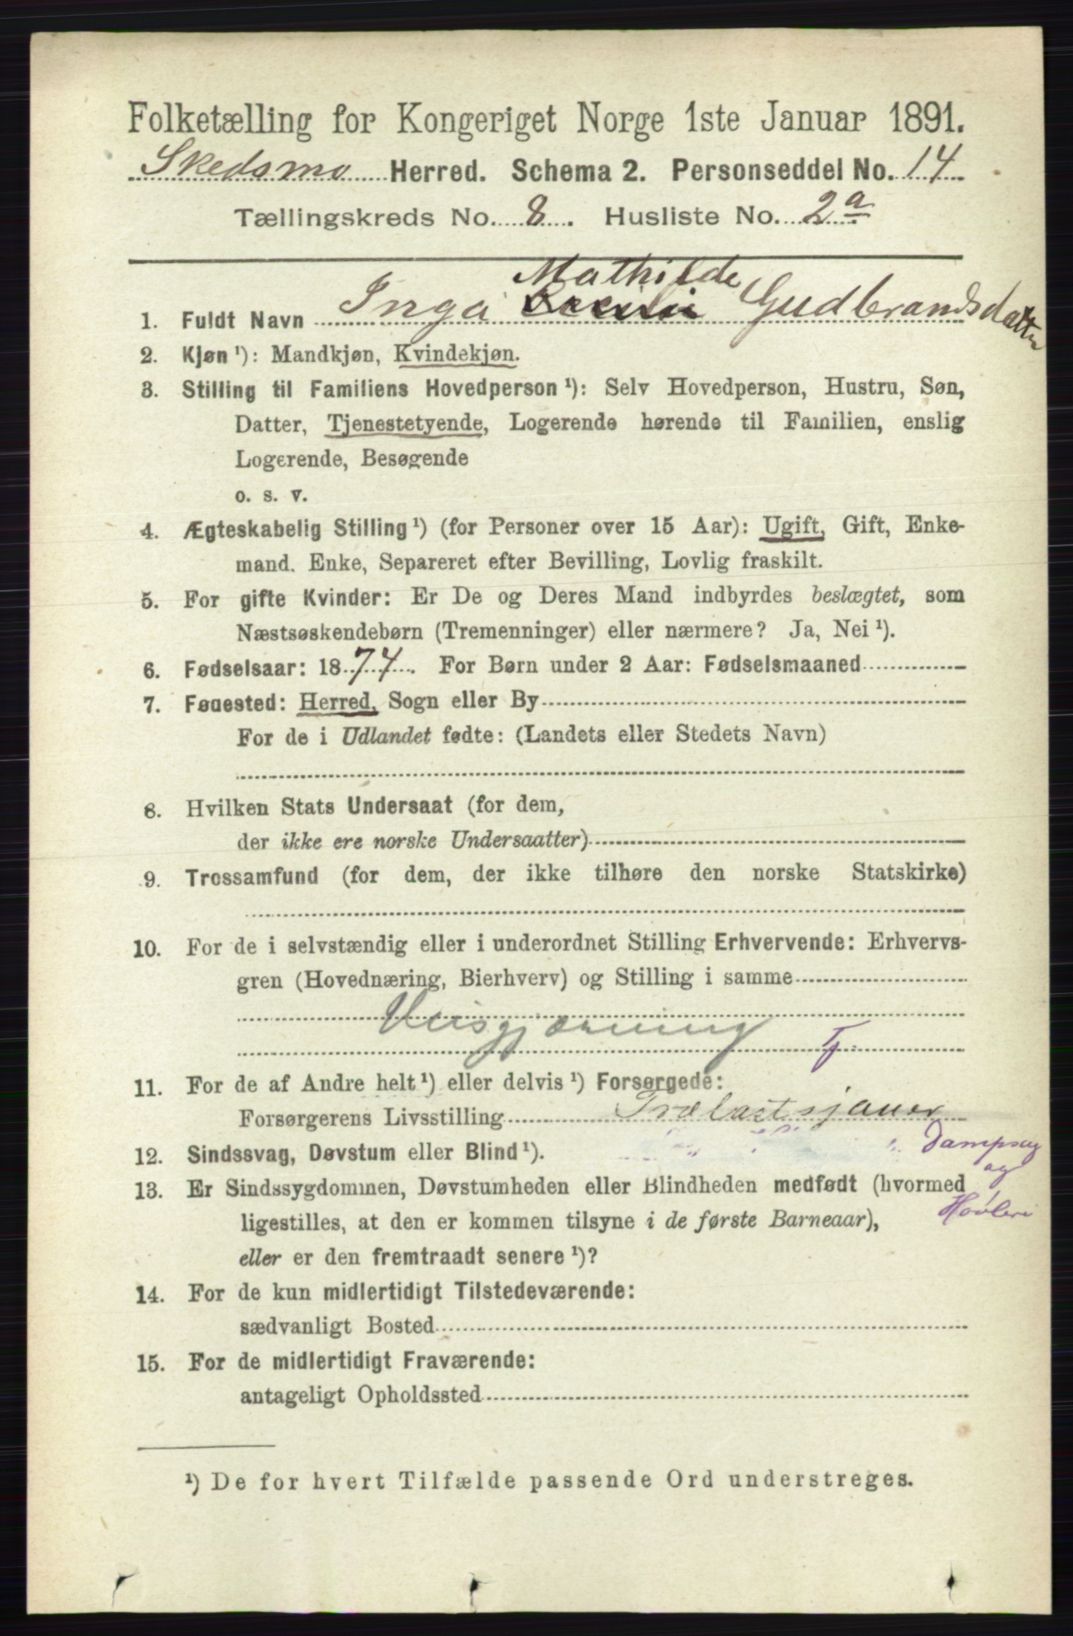 Folketælling for Kongeriget Norge 1ste Januar 1891.
Skedsmo Herred. Schema 2. Personseddel No. 14
Tællingskreds No. 8. Husliste No. 2a
Mathilde
1. Fuldt Navn Inga Gudbrandsdatter
2. Kjøn ¹): Mandkjøn, Kvindekjøn.
3. Stilling til Familiens Hovedperson ¹): Selv Hovedperson, Hustru, Søn,
Datter, Tjenestetyende, Logerende hørende til Familien, enslig
Logerende, Besøgende
o. s. v.
4. Ægteskabelig Stilling ¹) (for Personer over 15 Aar): Ugift, Gift, Enke-
mand. Enke, Separeret efter Bevilling, Lovlig fraskilt.
5. For gifte Kvinder: Er De og Deres Mand indbyrdes beslægtet, som
Næstsøskendebørn (Tremenninger) eller nærmere? Ja, Nei ¹).
6. Fødselsaar: 1874. For Børn under 2 Aar: Fødselsmaaned
7. Føuested: Herred, Sogn eller By
For de i Udlandet fødte: (Landets eller Stedets Navn)
8. Hvilken Stats Undersaat (for dem,
der ikke ere norske Undersaatter)
9. Trossamfund (for dem, der ikke tilhøre den norske Statskirke)
10. For de i selvstændig eller i underordnet Stilling Erhvervende: Erhvervs-
gren (Hovednæring, Bierhverv) og Stilling i samme
Husgjærning
Tj.
11. For de af Andre helt ¹) eller delvis ¹) Forsørgede:
Forsørgerens Livsstilling Trælastsjauer
12. Sindssvag, Døvstum eller Blind ¹). " " " Dampsag
og
13. Er Sindssygdommen, Døvstumheden eller Blindheden medfødt (hvormed
Høvleri
ligestilles, at den er kommen tilsyne i de første Barneaar),
eller er den fremtraadt senere ¹)?
14. For de kun midlertidigt Tilstedeværende:
sædvanligt Bosted
15. For de midlertidigt Fraværende:
antageligt Opholdssted
¹) De for hvert Tilfælde passende Ord understreges.